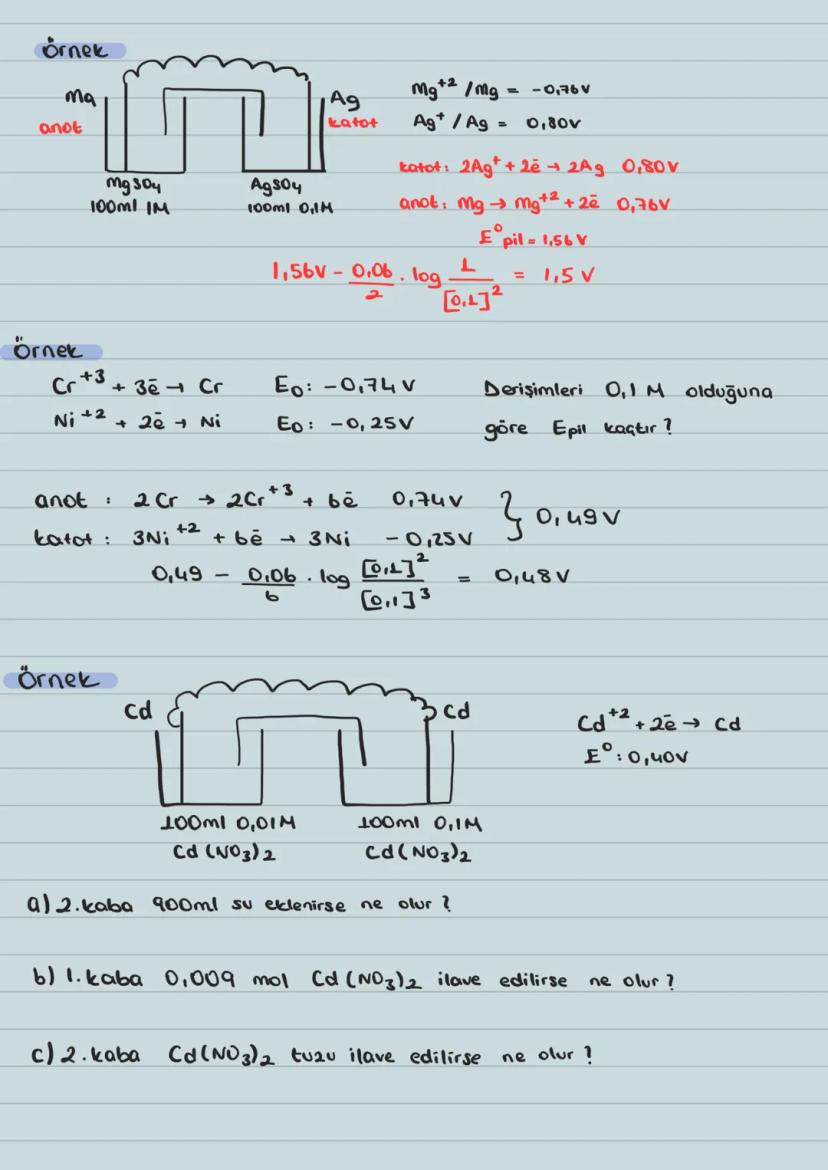 Örnek
Mg
anot
Ag
katot
MgSO4
100ml 1M
AgSO4
100ml 0,1M
Mg+2 /Mg = -0,76V
Ag+ / Ag = 0,80V
katot: 2Ag+ + 2ē → 2Ag 0,80V
anot: Mg → Mg+2 + 2ē 0,76V
E° pil = 1,56 V
1,56V - 0,06/2 . log 1/[0,1]² = 1,5 V
Örnek
Cr+3 + 3ē → Cr E0: -0,74V Derişimleri 0,1 M olduğuna
Ni+2 + 2ē → Ni E0: -0,25V göre Epil kaçtır?
anot : 2Cr → 2Cr+3 + 6ē 0,74V } 0,49V
katot : 3Ni+2 + 6ē → 3Ni -0,25V
0,49 - 0,06/6 . log [0,1]²/[0,1]³ = 0,48V
Örnek
Cd Cd
Cd+2 + 2ē → Cd
E°: 0,40V
100ml 0,01M 100ml 0,1M
Cd(NO3)2 Cd(NO3)2
a) 2.kaba 900ml su eklenirse ne olur?
b) 1.kaba 0,009 mol Cd(NO3)2 ilave edilirse ne olur?
c) 2.kaba Cd(NO3)2 tuzu ilave edilirse ne olur?